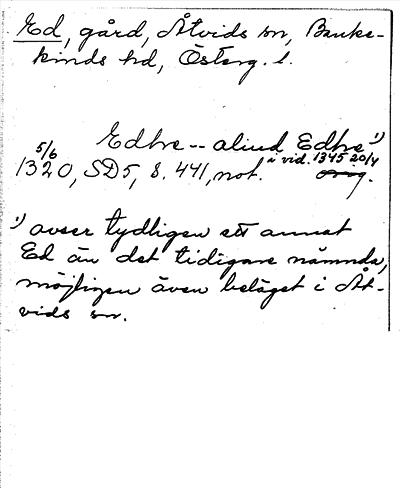 Ed, gård, Åtvids sn, Banke-
kinds hd, Österg. l.
Edhre -- aliud Edhre 1)
5/6 1320, SD5, s. 441, not. i vid. 1345 20/4 orig.
1) avser tydligen ett annat
Ed än det tidigare nämnda,
möjligen även beläget i Åt-
vids sn.